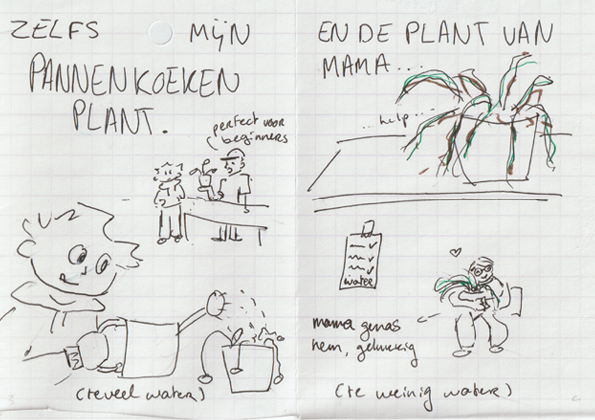 ZELFS MIJN
PANNENKOEKEN
PLANT.
perfect voor
beginners
(teveel water)
EN DE PLANT VAN
MAMA...
...help...
water
mama genas
hem, gelukkig
(te weinig water)